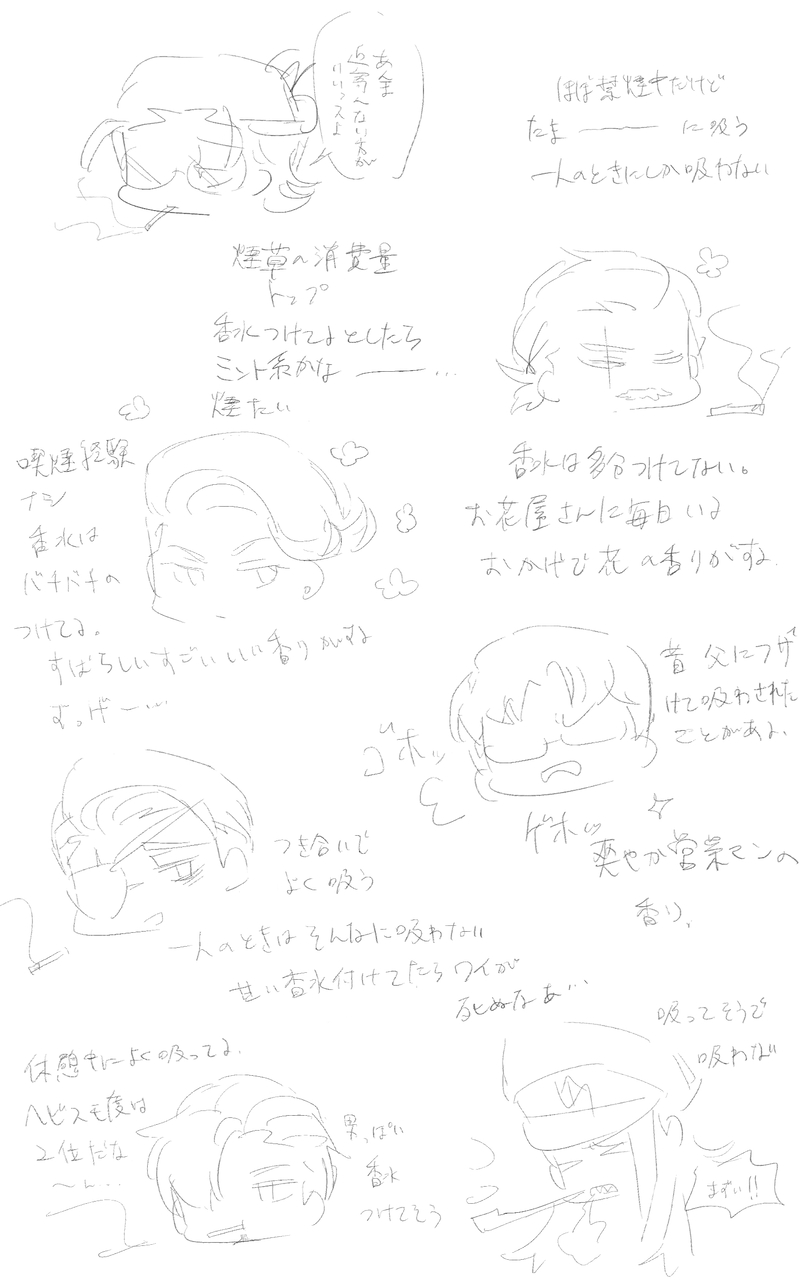 あんま
近寄んない方が
いいっスよ
煙草の消費量
トップ
香水つけてるとしたら
ミント系かな ー …
煙たい
ほぼ禁煙中だけど
たまーーーに吸う
一人のときにしか吸わない
香水は多分つけてない。
お花屋さんに毎日いる
おかげで花の香りがする
喫煙経験
ナシ
香水は
バチバチの
つけてる。
すばらしいすごいいい香りがする
すっげー…
昔 父にフザ
けて吸わされた
ことがある。
ゴホッ
ゲホッ
爽やか営業マンの
香り。
つき合いで
よく吸う
一人のときはそんなに吸わない
甘い香水付けてたらワイが
死ぬなあ…
休憩中によく吸ってる。
ヘビスモ度は
2位だな
〜ん…
男っぽい
香水
つけてそう
吸ってそうで
吸わない
まずい!!